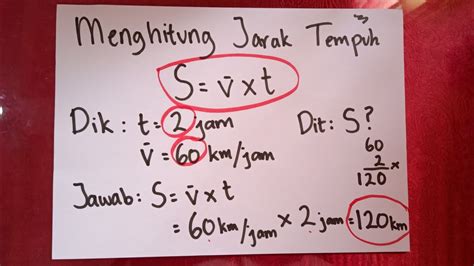 Menghitung Jarak Tempuh
S = v̄ x t
Dik : t = 2 jam
v̄ = 60 km/jam
Dit : S ?
60
2 x
120
Jawab : S = v̄ x t
= 60 km/jam x 2 jam = 120 km